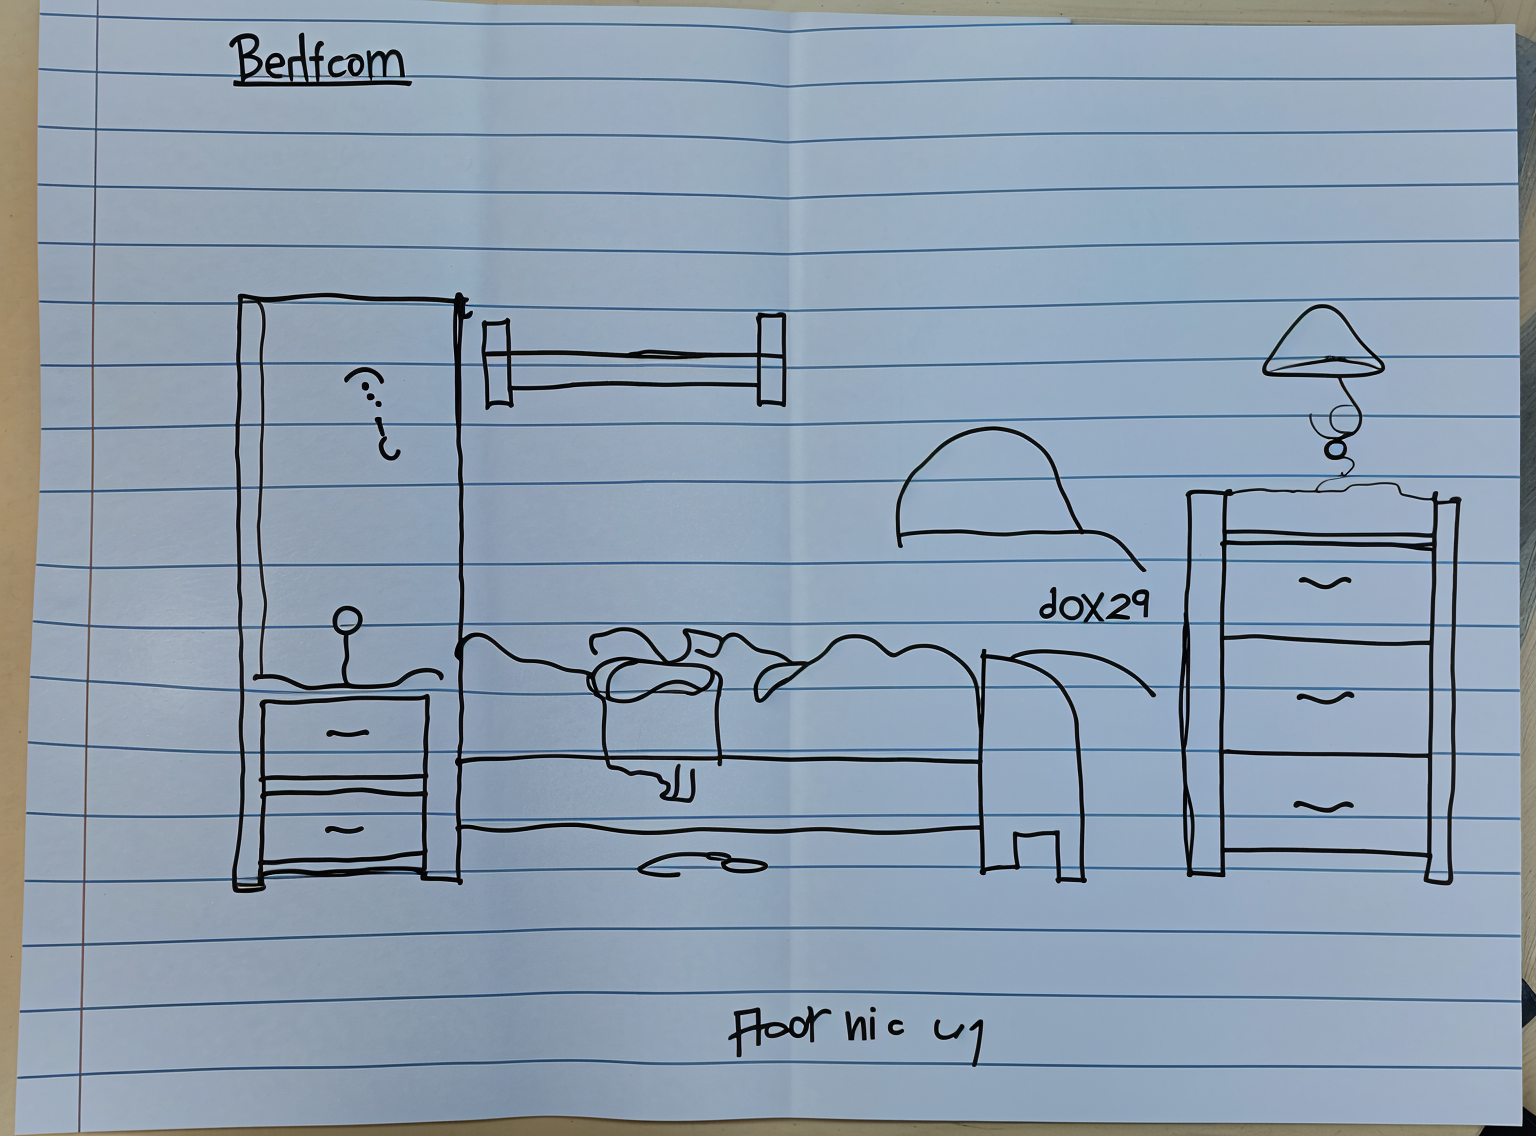 Bedfcom
dox29
Floor nic uy